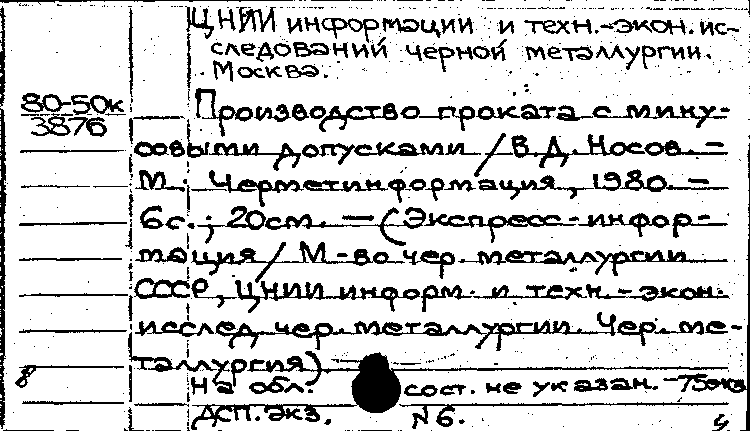 ЦНИИ информации и техн.-экон. ис-
следований черной металлургии.
Москва.
80-50к
3876
Производство проката с мину-
совыми допусками / В.Д. Носов. -
М.: Черметинформация, 1980. -
6с.; 20см. - (Экспресс-инфор-
мация / М-во чер. металлургии
СССР, ЦНИИ информ. и техн.-экон.
исслед. чер. металлургии. Чер. ме-
таллургия).
8
На обл. сост. не указан. - 75экз
ДСП. Экз. N6.